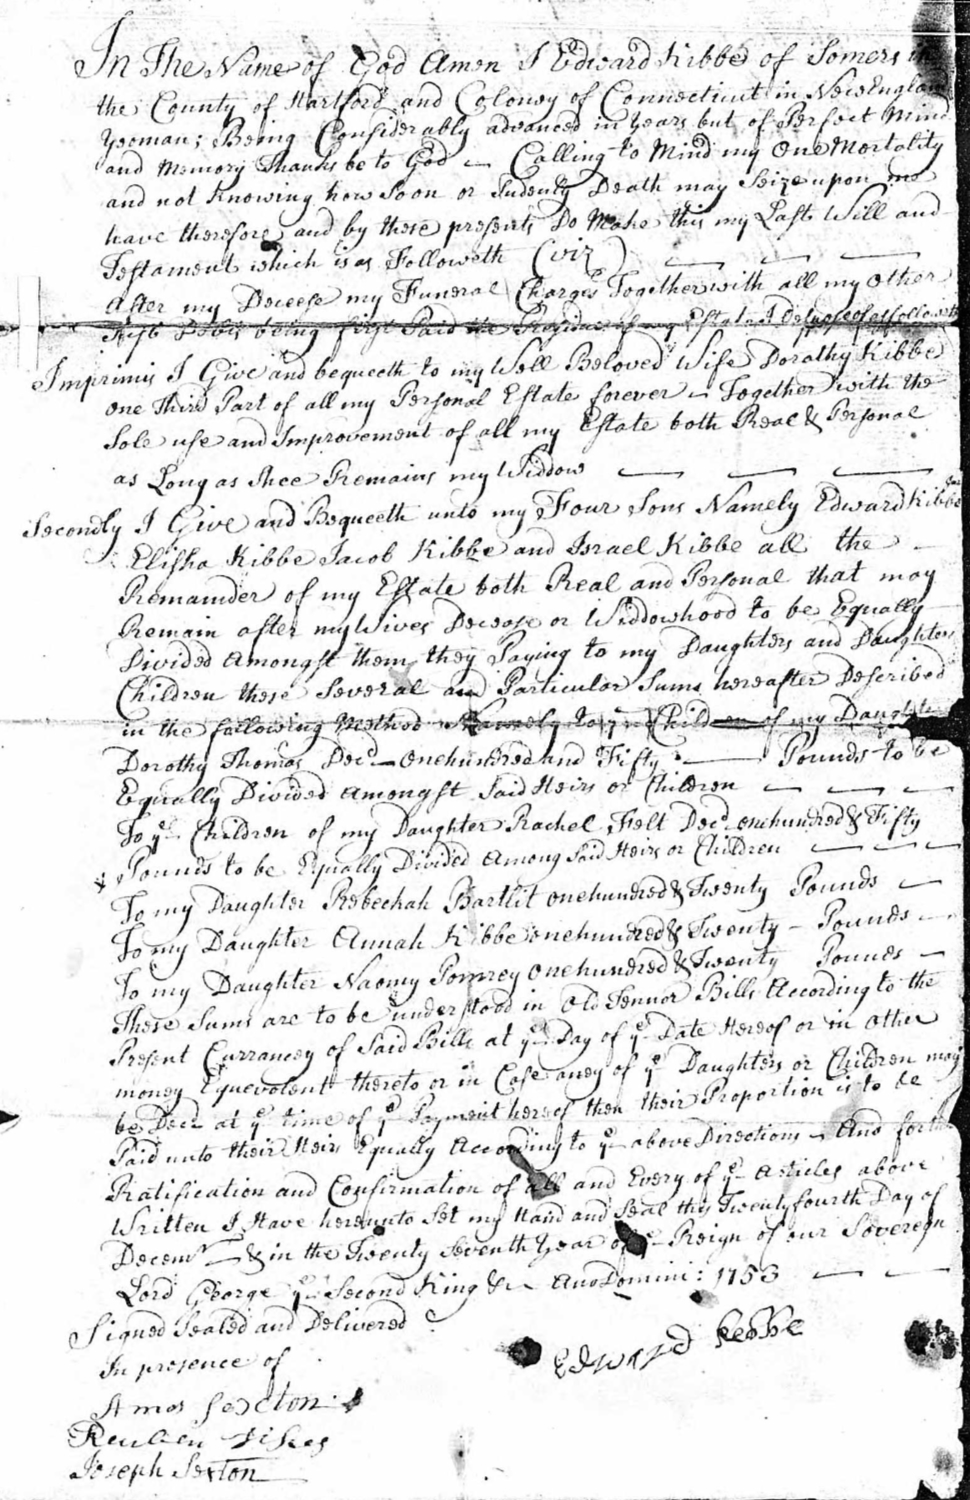 In The Name of God Amen I Edward Kibbe of Somers in
the County of Hartford and Coloney of Connecticut in New England
yeoman; Being Considerably advanced in years but of Perfect Mind
and Memory Thanks be to God — Calling to Mind my One Mortality
and not Knowing how Soon or Sudenly Death may Seize upon me
have therefore and by these presents Do Make this my Last Will and
Testament which is as Followeth (viz) — — —
After my Decese my Funeral Charges Together with all my Other
Just Debts being first Paid the of my Estate I Dispose of as followeth
Imprimis I Give and bequeeth to my Well Beloved Wife Dorathy Kibbe
one third Part of all my Personal Estate forever — Together with the
Sole use and Improvement of all my Estate both Real & Personal
as Long as Shee Remains my Widdow — — —
Secondly I Give and Bequeeth unto my Four Sons Namely Edward Kibbe
Elisha Kibbe Jacob Kibbe and Israel Kibbe all the —
Remainder of my Estate both Real and Personal that may
Remain after my Wives Decease or Widdowhood to be Equally —
Divided Amongst them, they Paying to my Daughters and Daughters
Children these Several and Particular Sums hereafter Described
in the following Method Namely to ye Children of my Daughter
Dorothy Thomas Decd — onehundred and Fifty — Pounds to be
Equally Divided Amongst Said Heirs or Children — — —
To ye Children of my Daughter Rachel Felt Decd onehundred & Fifty
Pounds to be Equally Divided Among Said Heirs or Children — — —
To my Daughter Rebeckah Bartlit onehundred & Twenty Pounds —
To my Daughter Annah Kibbe onehundred & Twenty — Pounds —
To my Daughter Naomy Pomrey onehundred & Twenty Pounds —
These Sums are to be understood in Old Tennor Bills According to the
Present Currancey of Said Bills at ye Day of ye Date Hereof or in Other
money Equevolent thereto or in Case aney of ye Daughters or Children may
be Decd at ye time of ye Payment hereof then their Proportion is to be
Paid unto their Heirs Equally According to ye above Directions — And for
Ratification and Confirmation of all and Every of ye Articles above
Written I Have hereunto Set my Hand and Seal this Twenty fourth Day of
Decemr — & in the Twenty Seventh Year of ye Reign of our Sovereign
Lord George ye Second King &c Ano Domini: 1753 — —
Signed Sealed and Delivered
In presence of
Edward Kebbe
Amos Sexton
Reuben
Joseph Sexton